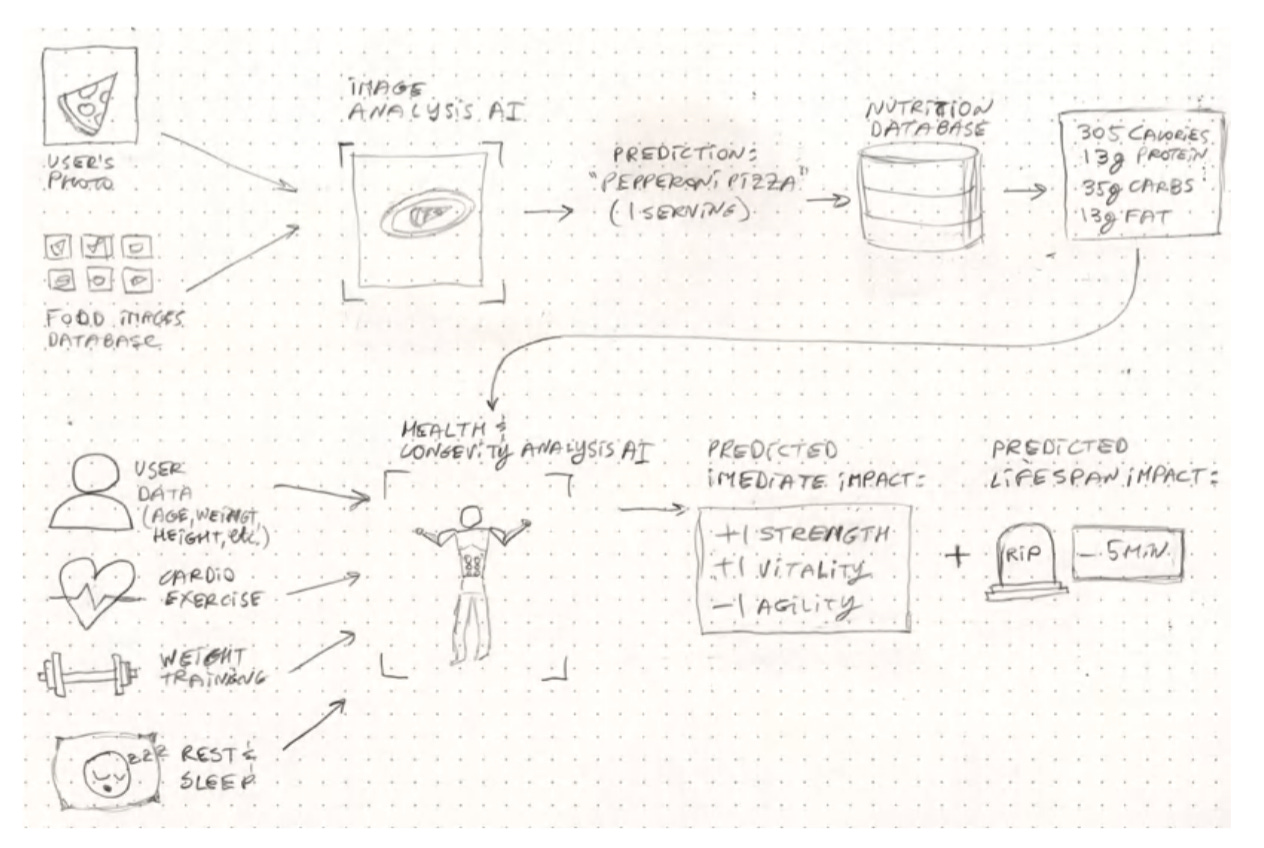 IMAGE
ANALYSIS AI
USER'S
PHOTO
FOOD IMAGES
DATABASE
PREDICTION:
"PEPPERONI PIZZA"
(1 SERVING)
NUTRITION
DATABASE
305 CALORIES
13g PROTEIN
35g CARBS
13g FAT
HEALTH &
LONGEVITY ANALYSIS AI
USER
DATA
(AGE, WEIGHT,
HEIGHT, etc.)
CARDIO
EXERCISE
WEIGHT
TRAINING
zzz
REST &
SLEEP
PREDICTED
IMEDIATE IMPACT:
+1 STRENGTH
+1 VITALITY
-1 AGILITY
+
PREDICTED
LIFESPAN IMPACT:
RIP
- 5 MIN.